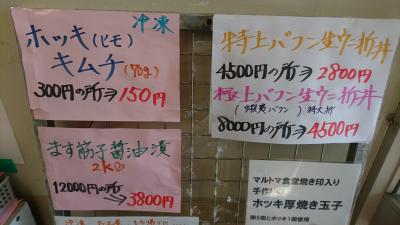 冷凍
ホッキ(ヒモ)
キムチ(70g)
300円の所⇒150円
ます筋子醤油漬
2K
12000円の所
⇒3800円
特上バフン生ウニ折丼
4500円の所⇒2800円
極上バフン生ウニ折丼
(蝦夷バフン)特大折
8000円の所⇒4500円
マルトマ食堂焼き印入り
手作り
ホッキ厚焼き玉子
卵5個とホッキ1個使用
冷凍